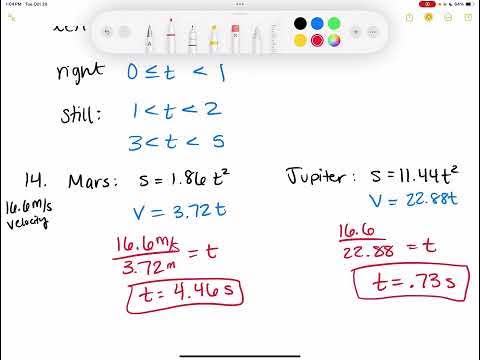 1:04 PM Tue Oct 20
64%
right 0 ≤ t < 1
still: 1 < t < 2
3 < t < 5
14. Mars: s = 1.86t²
16.6 m/s
velocity
V = 3.72t
16.6 m/s / 3.72 m = t
t = 4.46 s
Jupiter: s = 11.44t²
V = 22.88t
16.6 / 22.88 = t
t = .73 s